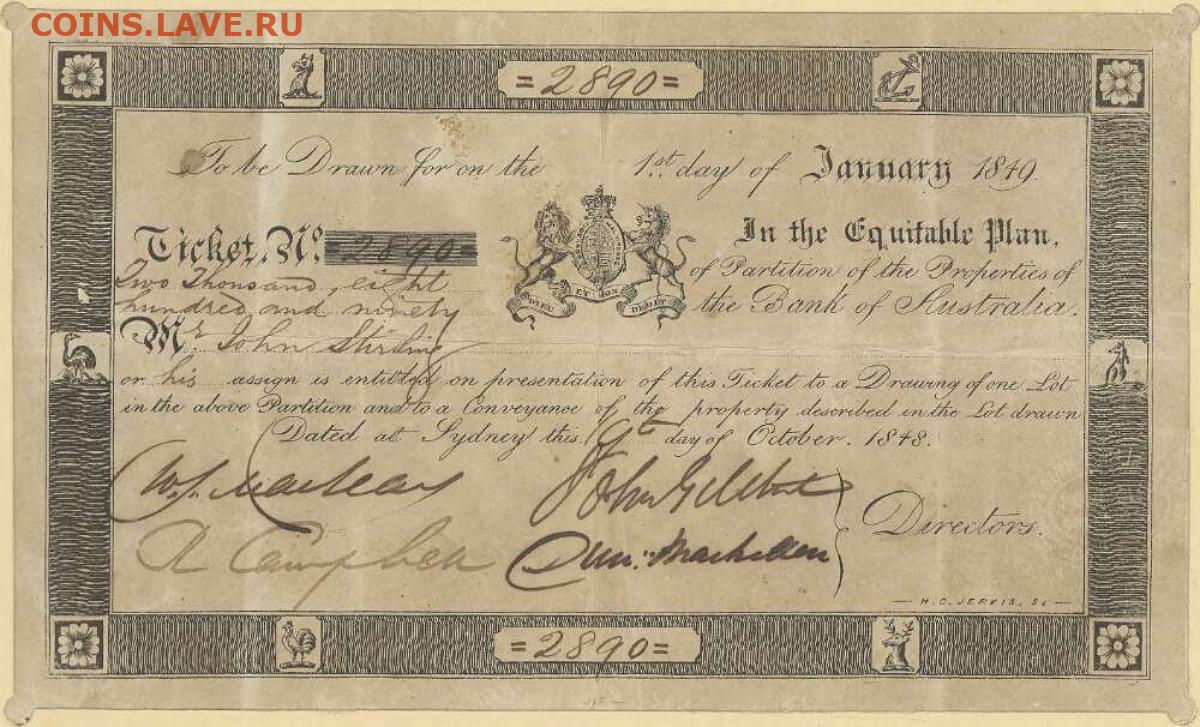 COINS.LAVE.RU
=2890=
To be Drawn for on the 1st. day of January 1849.
Ticket. No. 2890
In the Equitable Plan,
Two Thousand, eight
of Partition of the Properties of
hundred and ninety
the Bank of Australia.
DIEU ET MON DROIT
Mr. John Stirling
or his assign is entitled on presentation of this Ticket to a Drawing of one Lot
in the above Partition and to a Conveyance of the property described in the Lot drawn
Dated at Sydney this 9th day of October. 1848.
John Gilchrist
A Campbell
Directors.
H.C. JERVIS. Sc
=2890=